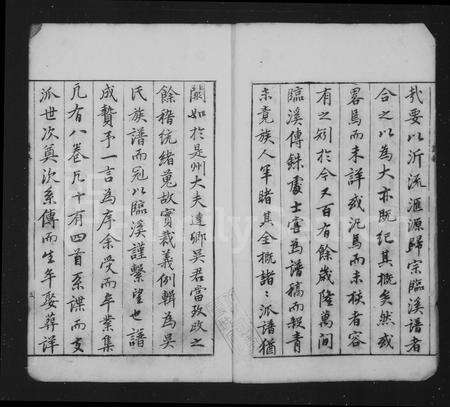 哉要以沂流滙源歸宗臨溪譜者
合之以為大亦既紀其概矣然或
畧焉而未詳或泥焉而未核者容
有之矧於今又百有餘歲隆萬間
臨溪傳銖處士嘗為譜稿而殺青
未竟族人罕睹其全概諸〻派譜猶
闕如於是州大夫達卿吳君當孜政之
餘稽統緒蒐故實裁義例輯為吳
氏族譜而冠以臨溪謹繫望也譜
成贅予一言為序余受而卒業集
凡有八卷凡十有四首系譜而支
派世次奠次系傳而生年娶葬詳